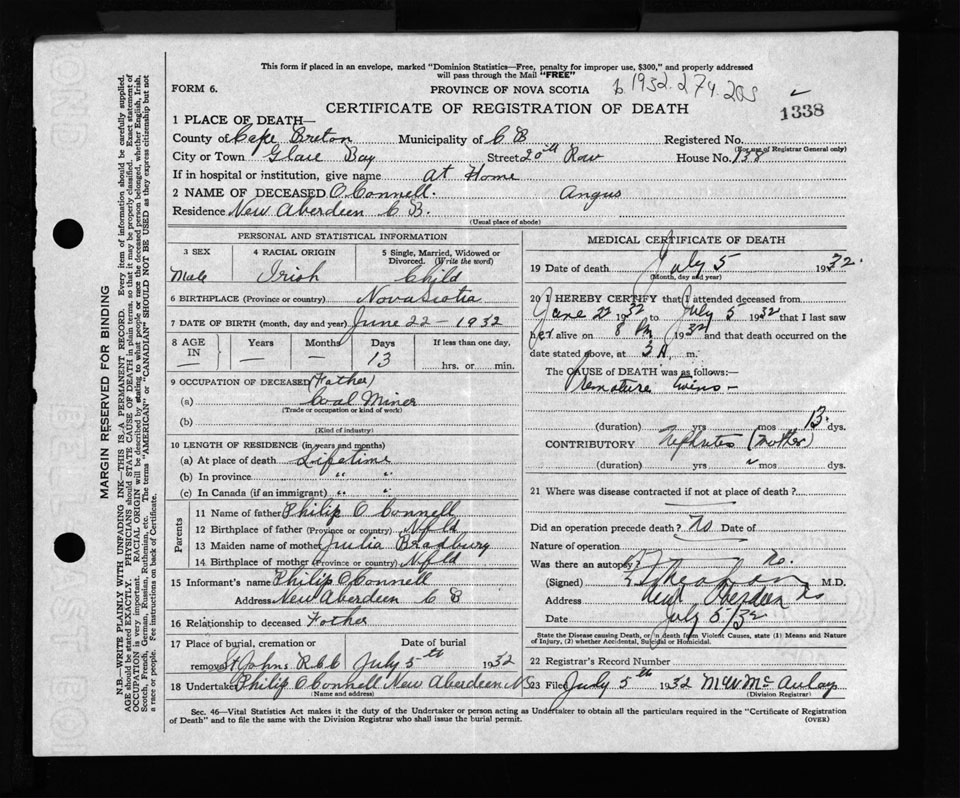 This form if placed in an envelope, marked "Dominion Statistics—Free, penalty for improper use, $300," and properly addressed
will pass through the Mail "FREE"
FORM 6.
PROVINCE OF NOVA SCOTIA
b 1932.274.203
CERTIFICATE OF REGISTRATION OF DEATH
1338
1 PLACE OF DEATH—
County of Cape Breton Municipality of C B Registered No.
(For use of Registrar General only)
City or Town Glace Bay Street 20th Row House No. 138
If in hospital or institution, give name at Home
2 NAME OF DECEASED O Connell. Angus
Residence New Aberdeen C B.
(Usual place of abode)
PERSONAL AND STATISTICAL INFORMATION
3 SEX 4 RACIAL ORIGIN 5 Single, Married, Widowed or Divorced. (Write the word)
Male Irish Child
6 BIRTHPLACE (Province or country) Nova Scotia
7 DATE OF BIRTH (month, day and year) June 22 - 1932
8 AGE IN Years Months Days If less than one day.
— — 13 hrs. or min.
9 OCCUPATION OF DECEASED (Father)
(a) Coal Miner
(Trade or occupation or kind of work)
(b)
(Kind of industry)
10 LENGTH OF RESIDENCE (in years and months)
(a) At place of death Lifetime
(b) In province " "
(c) In Canada (if an immigrant) " "
Parents
11 Name of father Philip O Connell
12 Birthplace of father (Province or country) Nfld
13 Maiden name of mother Julia Bradbury
14 Birthplace of mother (Province or country) Nfld
15 Informant's name Philip O Connell
Address New Aberdeen C B
16 Relationship to deceased Father
17 Place of burial, cremation or Date of burial
removal St Johns R C C July 5th 1932
18 Undertaker Philip O Connell New Aberdeen N S
(Name and address)
MEDICAL CERTIFICATE OF DEATH
19 Date of death July 5 1932.
(Month, day and year)
20 I HEREBY CERTIFY that I attended deceased from
June 22 1932 to July 5 1932 that I last saw
her alive on 8 Pm 1932 and that death occurred on the
date stated above, at 3 A. m.
The CAUSE OF DEATH was as follows:—
Premature twins -
(duration) yrs mos 13. dys.
CONTRIBUTORY Nephrites (mother)
(duration) yrs mos dys.
21 Where was disease contracted if not at place of death?
Did an operation precede death? no Date of
Nature of operation
Was there an autopsy? no.
(Signed) M.D.
Address New Aberdeen
Date July 5/32
State the Disease causing Death, or in death from Violent Causes, state (1) Means and Nature
of Injury, (2) whether Accidental, Suicidal or Homicidal.
22 Registrar's Record Number
23 Filed July 5th 1932 M W McAulay
(Division Registrar)
Sec. 46—Vital Statistics Act makes it the duty of the Undertaker or person acting as Undertaker to obtain all the particulars required in the "Certificate of Registration
of Death" and to file the same with the Division Registrar who shall issue the burial permit.
(OVER)
MARGIN RESERVED FOR BINDING
N.B.—WRITE PLAINLY WITH UNFADING INK—THIS IS A PERMANENT RECORD. Every item of information should be carefully supplied.
AGE should be stated EXACTLY. PHYSICIANS should STATE CAUSE OF DEATH in plain terms, so that it may be properly classified. Exact statement of
OCCUPATION is very important. RACIAL ORIGIN will be described by stating to what people or race the deceased person belonged, whether English, Irish,
Scotch, French, German, Russian, Ruthenian, etc. The terms "AMERICAN" or "CANADIAN" SHOULD NOT BE USED as they express citizenship but not
a race or people. Fee instructions on back of Certificate.